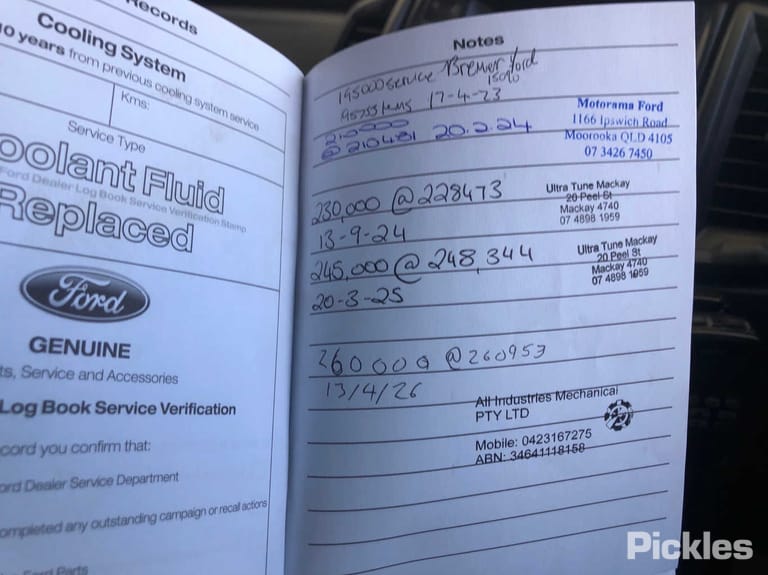 Records
Cooling System
10 years from previous cooling system service
Kms:
Service Type
Coolant Fluid
Ford Dealer Log Book Service Verification Stamp
Replaced
Ford
GENUINE
ts, Service and Accessories
Log Book Service Verification
cord you confirm that:
ord Dealer Service Department
ompleted any outstanding campaign or recall actions
Ford Parts
Notes
195000 Service Bremer Ford
17-4-23
Motorama Ford
1166 Ipswich Road
Moorooka QLD 4105
07 3426 7450
210000
@ 210481 20.2.24
230,000 @ 228473
13-9-24
Ultra Tune Mackay
20 Peel St
Mackay 4740
07 4898 1959
245,000 @ 248,344
20-3-25
Ultra Tune Mackay
20 Peel St
Mackay 4740
07 4898 1959
260000 @ 260953
13/4/26
All Industries Mechanical
PTY LTD
Mobile: 0423167275
ABN: 34641118158
Pickles